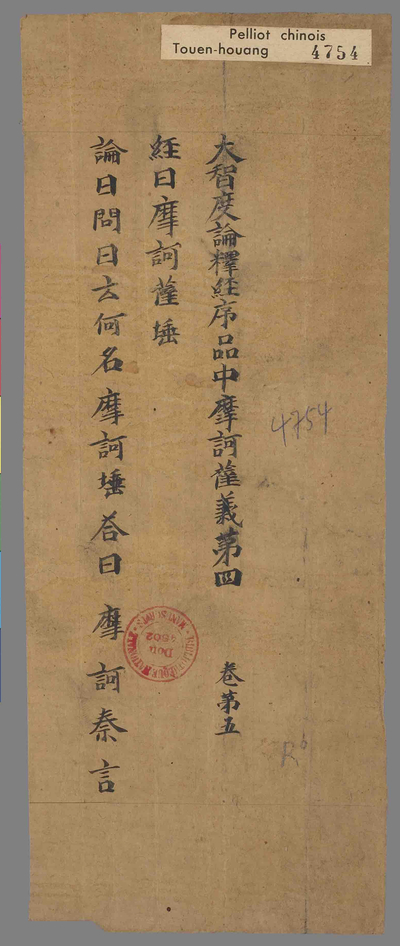 Pelliot chinois
Touen-houang 4754
大智度論釋経序品中摩訶薩義第四 卷第五
経曰摩訶薩埵
論曰問曰云何名摩訶埵荅曰摩訶秦言
4754
Don
4502